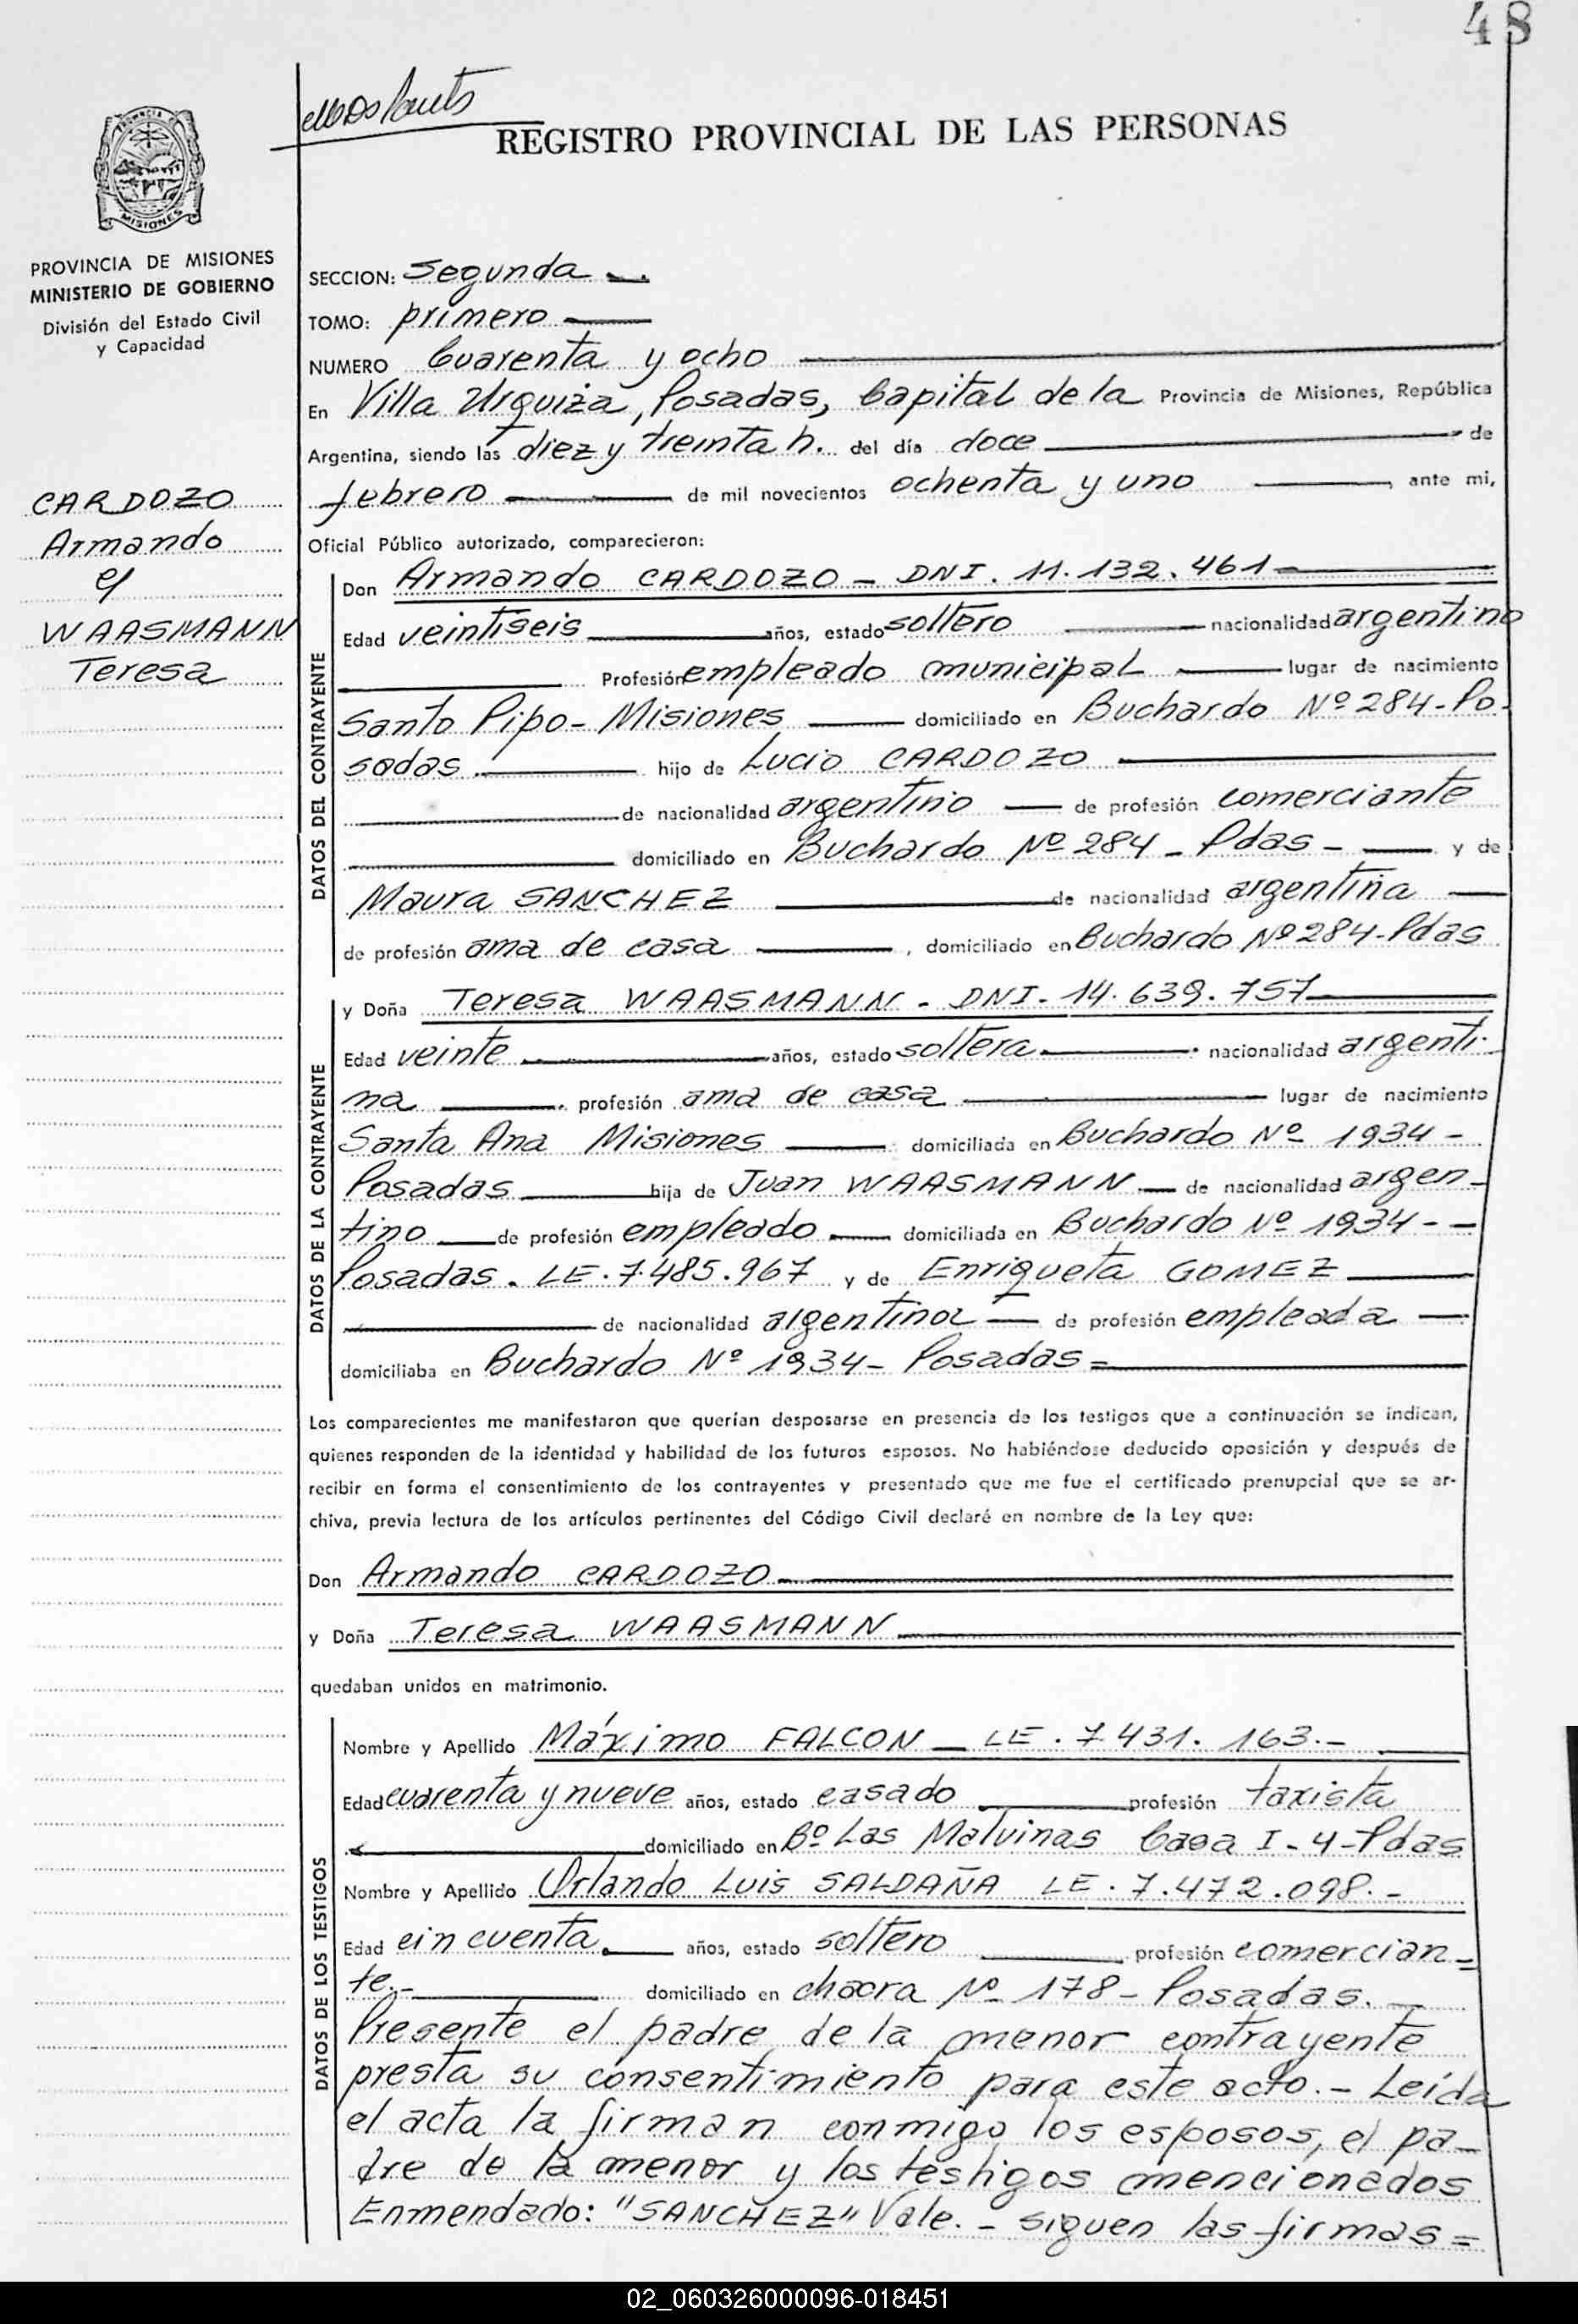 48
REGISTRO PROVINCIAL DE LAS PERSONAS
PROVINCIA DE MISIONES
MINISTERIO DE GOBIERNO
División del Estado Civil
y Capacidad
CARDOZO
Armando
c/
WAASMANN
Teresa
SECCION: Segunda
TOMO: primero
NUMERO Cuarenta y ocho
En Villa Urquiza, Posadas, Capital de la Provincia de Misiones, República
Argentina, siendo las diez y treinta h. del día doce de
febrero de mil novecientos ochenta y uno, ante mi,
Oficial Público autorizado, comparecieron:
DATOS DEL CONTRAYENTE
Don Armando CARDOZO - DNI. 11.132.461
Edad veintiseis años, estado soltero nacionalidad argentino
Profesión empleado municipal lugar de nacimiento
Santo Pipo - Misiones domiciliado en Buchardo Nº 284 - Po-
sadas hijo de Lucio CARDOZO
de nacionalidad argentino de profesión comerciante
domiciliado en Buchardo Nº 284 - Pdas - y de
Maura SANCHEZ de nacionalidad argentina
de profesión ama de casa, domiciliado en Buchardo Nº 284 - Pdas
DATOS DE LA CONTRAYENTE
y Doña Teresa WAASMANN - DNI - 14.639.757
Edad veinte años, estado soltera nacionalidad argenti-
na profesión ama de casa lugar de nacimiento
Santa Ana Misiones domiciliada en Buchardo Nº 1934 -
Posadas hija de Juan WAASMANN de nacionalidad argen-
tino de profesión empleado domiciliada en Buchardo Nº 1934 -
Posadas. LE. 7.485.967 y de Enriqueta GOMEZ
de nacionalidad argentina de profesión empleada
domiciliaba en Buchardo Nº 1934 - Posadas =
Los comparecientes me manifestaron que querían desposarse en presencia de los testigos que a continuación se indican,
quienes responden de la identidad y habilidad de los futuros esposos. No habiéndose deducido oposición y después de
recibir en forma el consentimiento de los contrayentes y presentado que me fue el certificado prenupcial que se ar-
chiva, previa lectura de los artículos pertinentes del Código Civil declaré en nombre de la Ley que:
Don Armando CARDOZO
y Doña Teresa WAASMANN
quedaban unidos en matrimonio.
DATOS DE LOS TESTIGOS
Nombre y Apellido Máximo FALCON - LE. 7.431.163.-
Edad cuarenta y nueve años, estado casado profesión taxista
domiciliado en Bº Las Malvinas Casa I - 4 - Pdas
Nombre y Apellido Orlando Luis SALDAÑA LE. 7.472.098.-
Edad cincuenta años, estado soltero profesión comercian=
te.- domiciliado en chacra Nº 178 - Posadas.
Presente el padre de la menor contrayente
presta su consentimiento para este acto.- Leída
el acta la firman conmigo los esposos, el pa-
dre de la menor y los testigos mencionados
Enmendado: "SANCHEZ" Vale.- siguen las firmas =
02_060326000096-018451